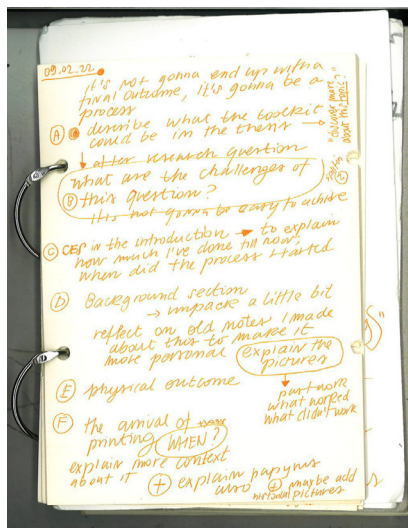 09.02.22
it's not gonna end up with a
final outcome, it's gonna be a
process
A describe what the toolkit
could be in the thesis →
"
about this topic?"
after research question
what are the challenges of
B this question?
it's not gonna be easy to achieve
C CES in the introduction → to explain
how much I've done till now
when did the process started
D Background section
→ unpack a little bit
reflect on old notes I made
about this to make it
more personal
explain the
pictures
E physical outcome
part work
what worked
what didn't work
F the arrival of
printing WHEN?
explain more context
about it
+ explain papyrus
also + maybe add
historical pictures